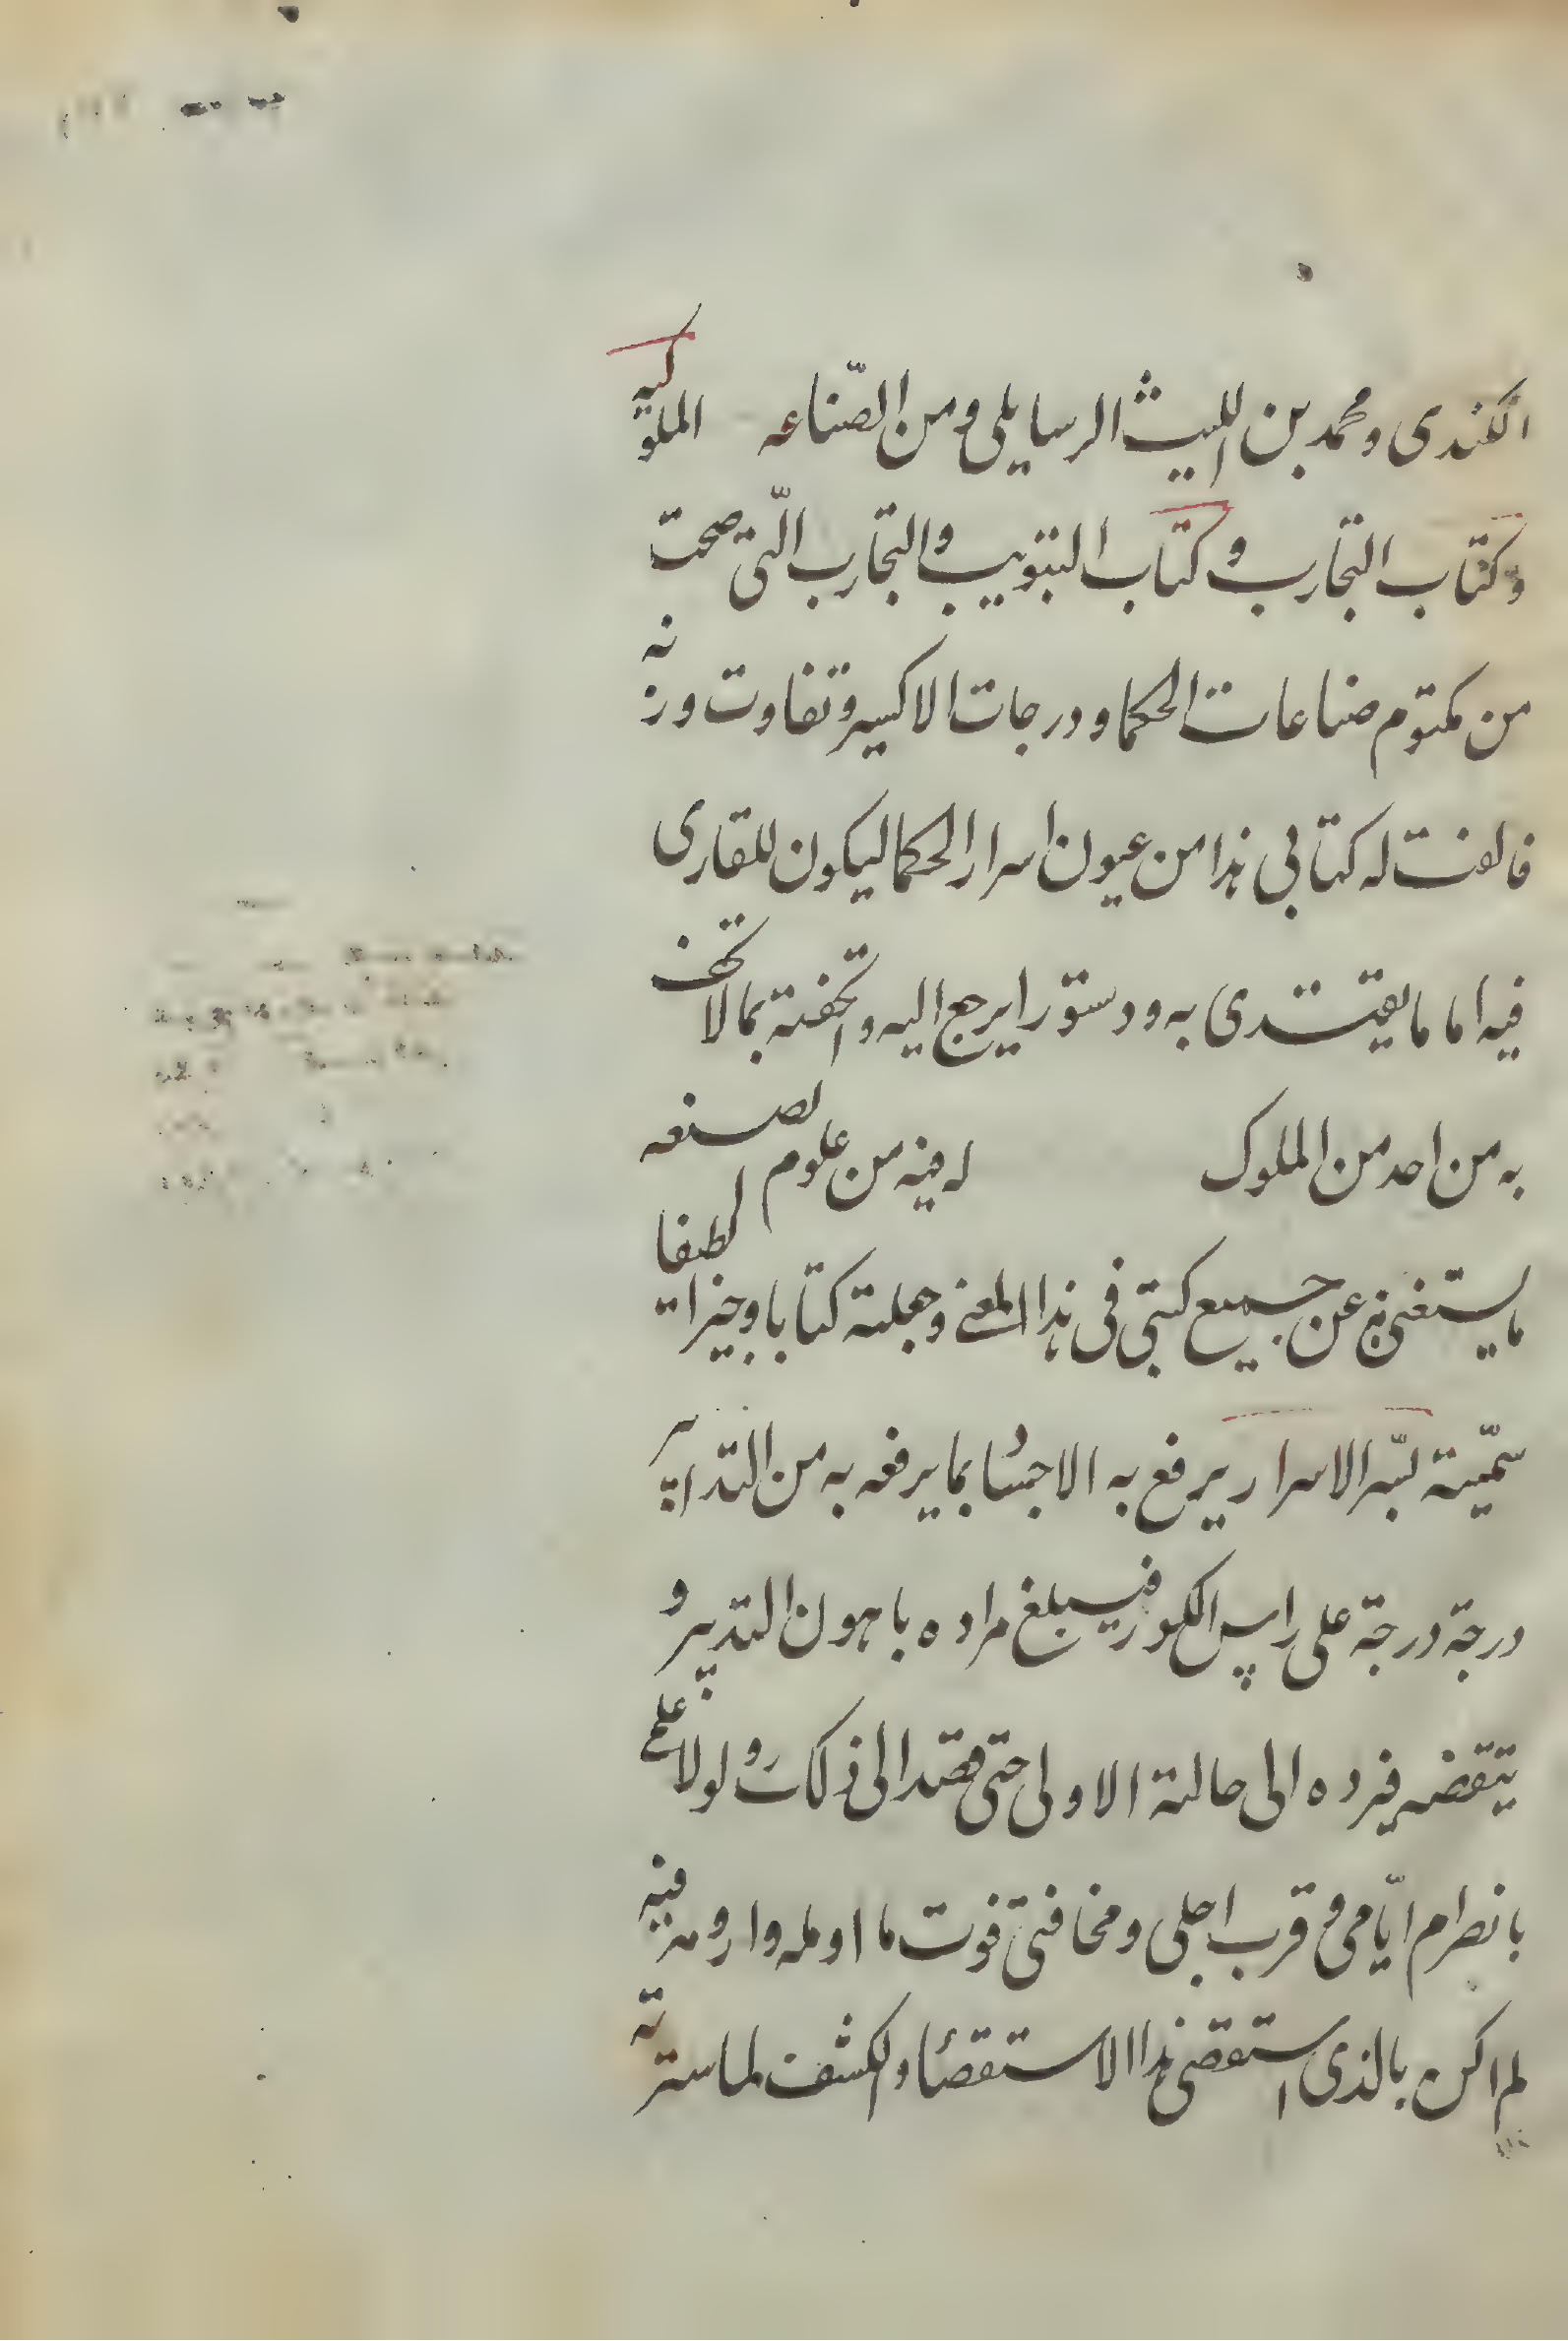 الكندى ومحمد بن الليث الرسايلى ومن الصّناعه الملوكيه
وكتاب التجارب وكتاب التبويب والتجارب الّتى صحت
من مكتوم صناعات الحكما ودرجات الاكسير وتفاوت وزنه
فالفت له كتابى هذا من عيون اسرار الحكما ليكون للقارى
فيه اماما يقتدى به ودستورا يرجع اليه واتحفته بما لا تحف
به من احد من الملوك له فيه من علوم الصنعه
ما يستغنى به عن جميع كتبى فى هذا المعنى وجعلته كتابا وجيزا لطيفا
سمّيته بسّر الاسرار يرفع به الاجساد بما يرفعه به من التدابير
درجة درجة على راس الكور فيبلغ مراده باهون التدبير و
ينقضه فيرده الى حالته الاولى حتى قصد الى ذلك ولولا علمى
بانصرام ايّامى وقرب اجلى ومخافتى فوت ما اومله وارومه فيه
لم اكن بالذى استقصى هذا الاستقصا والكشف لما سترته